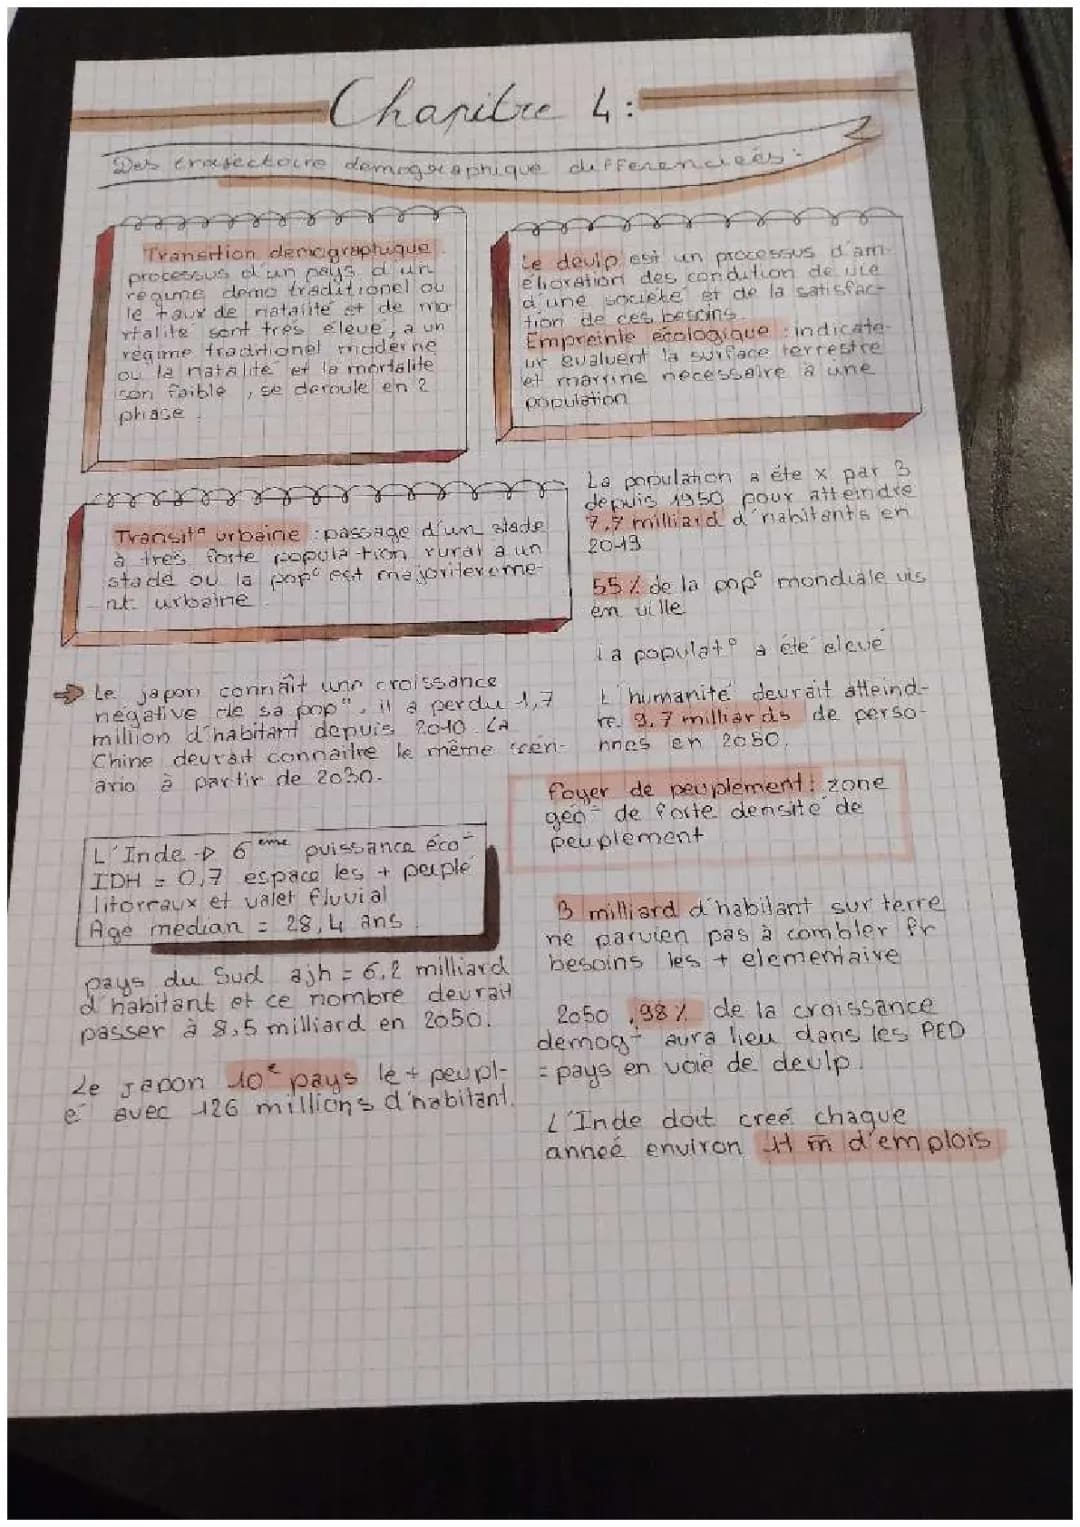 Chapitre 4:
Des trajectoire démographique differenciées:
Transition demographique
processus d'un pays d'un
regime demo traditionel ou
le taux de natalité et de mo-
rtalité sont très élevé, a un
régime traditionel moderne
ou la natalité et la mortalité
son faible, se deroule en 2
phase.
Le devlp est un processus d'am-
élioration des condition de vie
d'une societé et de la satisfac-
tion de ces besoins.
Empreinte ecologique : indicate-
ur evaluent la surface terrestre
et marine necessaire à une
population
Transit° urbaine : passage d'un stade
à tres forte popula tion rural a un
stade ou la pop° est majoritereme-
nt urbaine
La population a éte x par 3
depuis 1950 pour atteindre
7,7 milliard d'habitants en
2019
55% de la pop° mondiale vis
en ville
la populat° a été elevé
L'humanité devrait atteind-
re 9,7 milliards de perso-
nnes en 2050.
→ Le japon connaît une croissance
négative de sa pop°, il a perdu 1,7
million d'habitant depuis 2010. La
Chine devrait connaitre le même scén-
ario à partir de 2030.
foyer de peuplement : zone
géo- de forte densité de
peuplement
L'Inde → 6ème puissance éco-
IDH = 0,7 espace les + peuplé
litorraux et valet fluvial
Age median = 28,4 ans.
3 milliard d'habitant sur terre
ne parvien pas à combler lr
besoins les + elementaire
pays du Sud ajh = 6,2 milliard
d'habitant et ce nombre devrait
passer à 8,5 milliard en 2050.
2050, 98% de la croissance
demog- aura lieu dans les PED
= pays en voie de devlp.
Le Japon 10e pays le + peupl-
é avec 126 millions d'habitant.
L'Inde doit creé chaque
anneé environ 11 m̅ d'emplois